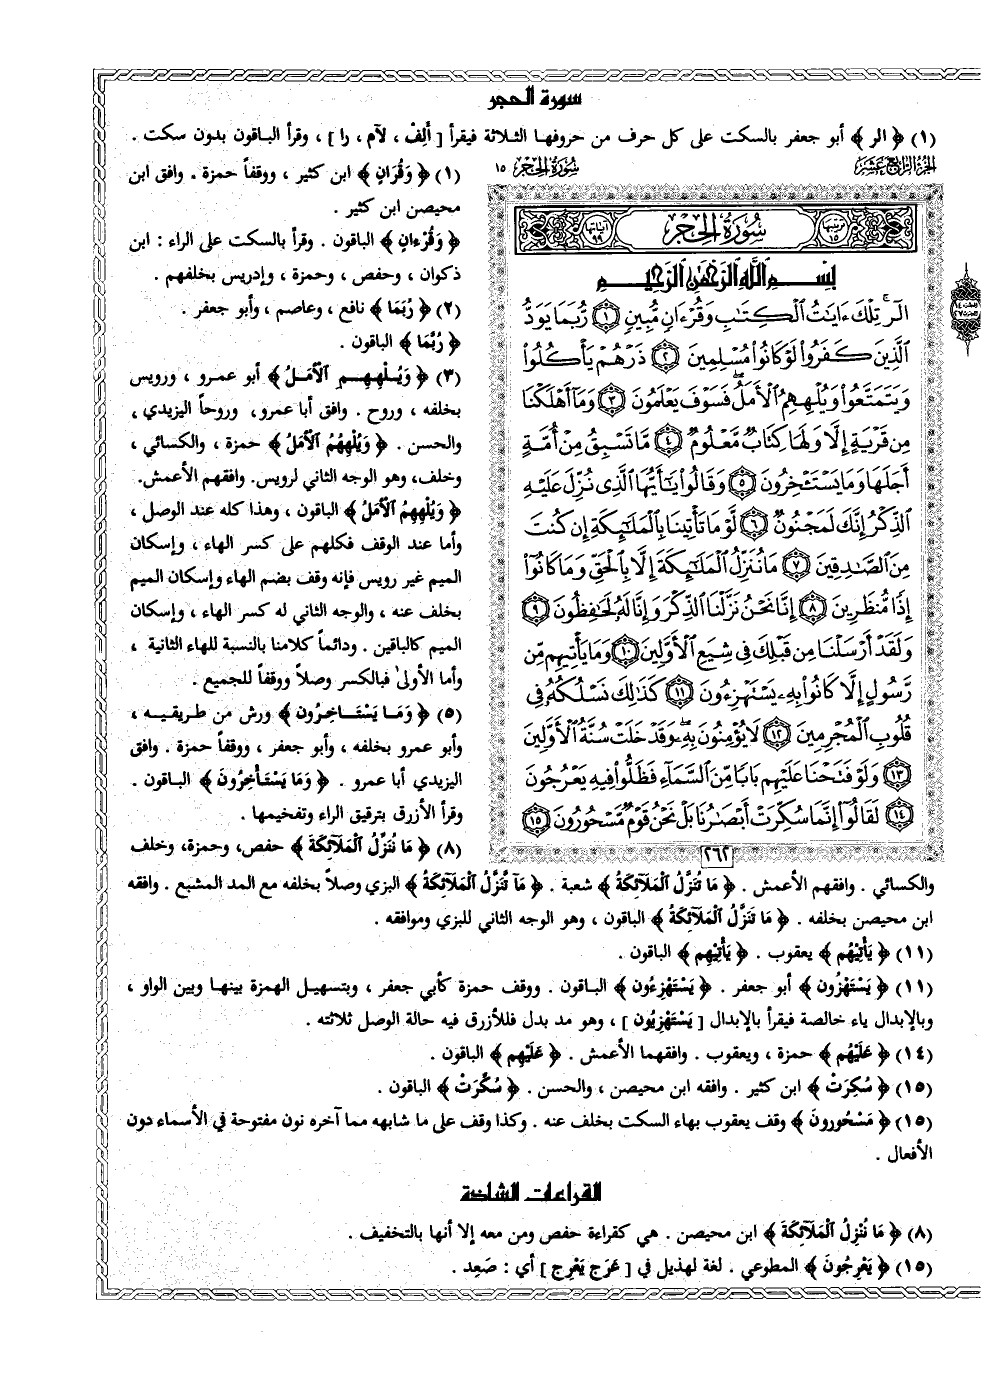 سورة الحجر
(١) ﴿ الر ﴾ أبو جعفر بالسكت على كل حرف من حروفها الثلاثة فيقرأ [ أَلِفْ ، لَآم ، را ] ، وقرأ الباقون بدون سكت .
الجزء الرابع عشر
سورة الحجر ١٥
(١) ﴿ وَقُرَانٍ ﴾ ابن كثير ، ووقفاً حمزة . وافق ابن
محيصن ابن كثير .
﴿ وَقُرْءانٍ ﴾ الباقون . وقرأ بالسكت على الراء : ابن
ذكوان ، وحفص ، وحمزة ، وإدريس بخلفهم .
(٢) ﴿ رُبَمَا ﴾ نافع ، وعاصم ، وأبو جعفر .
﴿ رُبَّمَا ﴾ الباقون .
(٣) ﴿ وَيُلْهِهِمِ ٱلْأَمَلُ ﴾ أبو عمرو ، ورويس
بخلفه ، وروح . وافق أبا عمرو، وروحاً اليزيدي ،
والحسن . ﴿ وَيُلْهِهُمُ ٱلْأَمَلُ ﴾ حمزة ، والكسائي ،
وخلف، وهو الوجه الثاني لرويس. وافقهم الأعمش.
﴿ وَيُلْهِهِمُ ٱلْأَمَلُ ﴾ الباقون ، وهذا كله عند الوصل ،
وأما عند الوقف فكلهم على كسر الهاء ، وإسكان
الميم غير رويس فإنه وقف بضم الهاء وإسكان الميم
بخلف عنه ، والوجه الثاني له كسر الهاء ، وإسكان
الميم كالباقين . ودائماً كلامنا بالنسبة للهاء الثانية ،
وأما الأولى فبالكسر وصلاً ووقفاً للجميع .
(٥) ﴿ وَمَا يَسْتَاخِرُون ﴾ ورش من طريقيه ،
وأبو عمرو بخلفه ، وأبو جعفر ، ووقفاً حمزة . وافق
اليزيدي أبا عمرو . ﴿ وَمَا يَسْتَأْخِرُونَ ﴾ الباقون .
وقرأ الأزرق بترقيق الراء وتفخيمها .
(٨) ﴿ مَا نُنَزِّلُ ٱلْمَلَآئِكَةَ ﴾ حفص، وحمزة، وخلف
سُورَةُ الحِجْرِ
ترتيبها ١٥
آياتها ٩٩
بِسْمِ اللَّهِ الرَّحْمَٰنِ الرَّحِيمِ
الٓر تِلْكَ ءَايَٰتُ ٱلْكِتَٰبِ وَقُرْءَانٍ مُّبِينٍ ١ رُّبَمَا يَوَدُّ
ٱلَّذِينَ كَفَرُوا۟ لَوْ كَانُوا۟ مُسْلِمِينَ ٢ ذَرْهُمْ يَأْكُلُوا۟
وَيَتَمَتَّعُوا۟ وَيُلْهِهِمُ ٱلْأَمَلُ فَسَوْفَ يَعْلَمُونَ ٣ وَمَآ أَهْلَكْنَا
مِن قَرْيَةٍ إِلَّا وَلَهَا كِتَابٌ مَّعْلُومٌ ٤ مَّا تَسْبِقُ مِنْ أُمَّةٍ
أَجَلَهَا وَمَا يَسْتَـْٔخِرُونَ ٥ وَقَالُوا۟ يَٰٓأَيُّهَا ٱلَّذِى نُزِّلَ عَلَيْهِ
ٱلذِّكْرُ إِنَّكَ لَمَجْنُونٌ ٦ لَّوْ مَا تَأْتِينَا بِٱلْمَلَٰٓئِكَةِ إِن كُنتَ
مِنَ ٱلصَّٰدِقِينَ ٧ مَا نُنَزِّلُ ٱلْمَلَٰٓئِكَةَ إِلَّا بِٱلْحَقِّ وَمَا كَانُوٓا۟
إِذًا مُّنظَرِينَ ٨ إِنَّا نَحْنُ نَزَّلْنَا ٱلذِّكْرَ وَإِنَّا لَهُۥ لَحَٰفِظُونَ ٩
وَلَقَدْ أَرْسَلْنَا مِن قَبْلِكَ فِى شِيَعِ ٱلْأَوَّلِينَ ١٠ وَمَا يَأْتِيهِم مِّن
رَّسُولٍ إِلَّا كَانُوا۟ بِهِۦ يَسْتَهْزِءُونَ ١١ كَذَٰلِكَ نَسْلُكُهُۥ فِى
قُلُوبِ ٱلْمُجْرِمِينَ ١٢ لَا يُؤْمِنُونَ بِهِۦ وَقَدْ خَلَتْ سُنَّةُ ٱلْأَوَّلِينَ
١٣ وَلَوْ فَتَحْنَا عَلَيْهِم بَابًا مِّنَ ٱلسَّمَآءِ فَظَلُّوا۟ فِيهِ يَعْرُجُونَ
١٤ لَقَالُوٓا۟ إِنَّمَا سُكِّرَتْ أَبْصَٰرُنَا بَلْ نَحْنُ قَوْمٌ مَّسْحُورُونَ ١٥
٢٦٢
والكسائي . وافقهم الأعمش . ﴿ مَا تُنَزَّلُ ٱلْمَلَآئِكَةُ ﴾ شعبة . ﴿ مَآ تَّنَزَّلُ ٱلْمَلَآئِكَةُ ﴾ البزي وصلاً بخلفه مع المد المشبع . وافقه
ابن محيصن بخلفه . ﴿ مَا تَنَزَّلُ ٱلْمَلَآئِكَةُ ﴾ الباقون ، وهو الوجه الثاني للبزي وموافقه .
(١١) ﴿ يَأْتِيهُم ﴾ يعقوب . ﴿ يَأْتِيهِم ﴾ الباقون .
(١١) ﴿ يَسْتَهْزُون ﴾ أبو جعفر . ﴿ يَسْتَهْزِءُون ﴾ الباقون . ووقف حمزة كأبي جعفر ، وبتسهيل الهمزة بينها وبين الواو ،
وبالإبدال ياء خالصة فيقرأ بالإبدال [ يَسْتَهْزِيُون ] ، وهو مد بدل فللأزرق فيه حالة الوصل ثلاثته .
(١٤) ﴿ عَلَيْهُم ﴾ حمزة ، ويعقوب . وافقهما الأعمش . ﴿ عَلَيْهِم ﴾ الباقون .
(١٥) ﴿ سُكِرَتْ ﴾ ابن كثير . وافقه ابن محيصن ، والحسن . ﴿ سُكِّرَتْ ﴾ الباقون .
(١٥) ﴿ مَسْحُورونَ ﴾ وقف يعقوب بهاء السكت بخلف عنه . وكذا وقف على ما شابهه مما آخره نون مفتوحة في الأسماء دون
الأفعال .
القراءات الشاذة
(٨) ﴿ مَا نُنْزِلُ ٱلْمَلَآئِكَةَ ﴾ ابن محيصن . هي كقراءة حفص ومن معه إلا أنها بالتخفيف .
(١٥) ﴿ يَعْرِجُونَ ﴾ المطوعي . لغة لهذيل في [ عَرَجَ يَعْرِج ] أي : صَعِد .